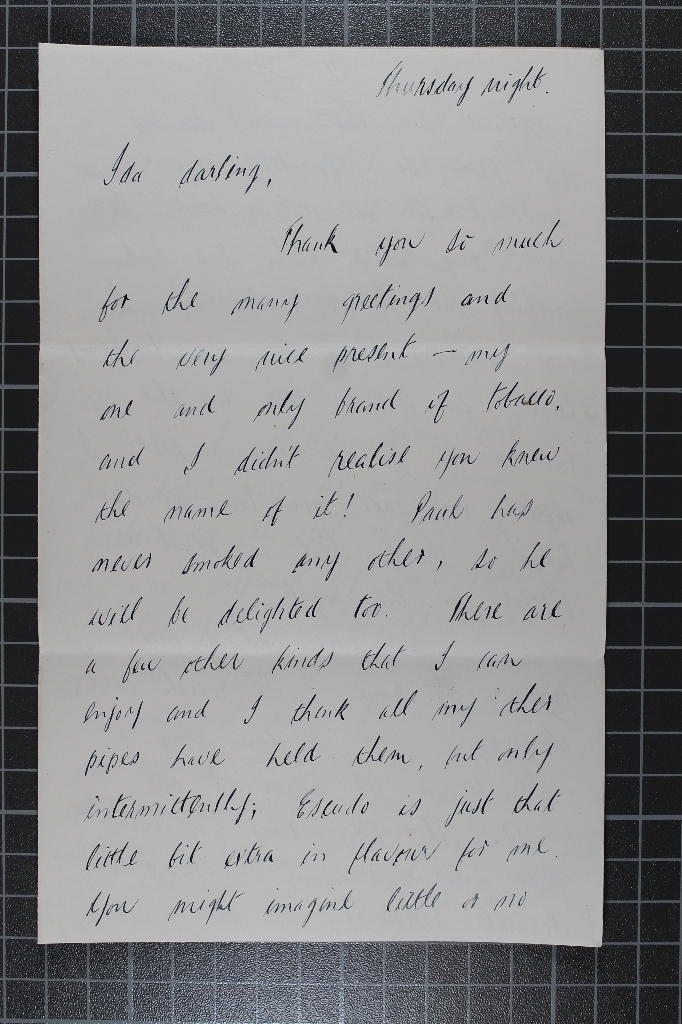 Thursday night.
Ida darling,
Thank you so much
for the many greetings and
the very nice present – my
one and only brand of tobacco,
and I didn't realise you knew
the name of it! Paul has
never smoked any other, so he
will be delighted too. There are
a few other kinds that I can
enjoy and I think all my other
pipes have held them, but only
intermittently; Escudo is just that
little bit extra in flavour for me.
You might imagine little or no